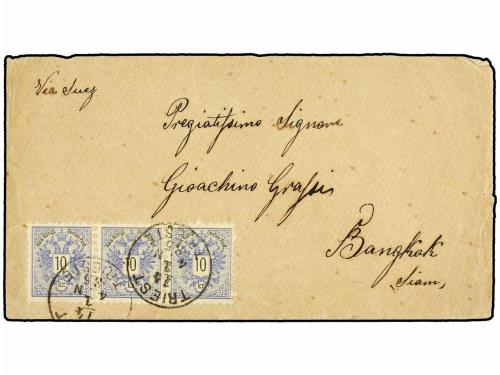 Via Suez
Pregiatissimo Signore
Gioachino Grassi
Bangkok
Siam
10 10 10
TRIEST